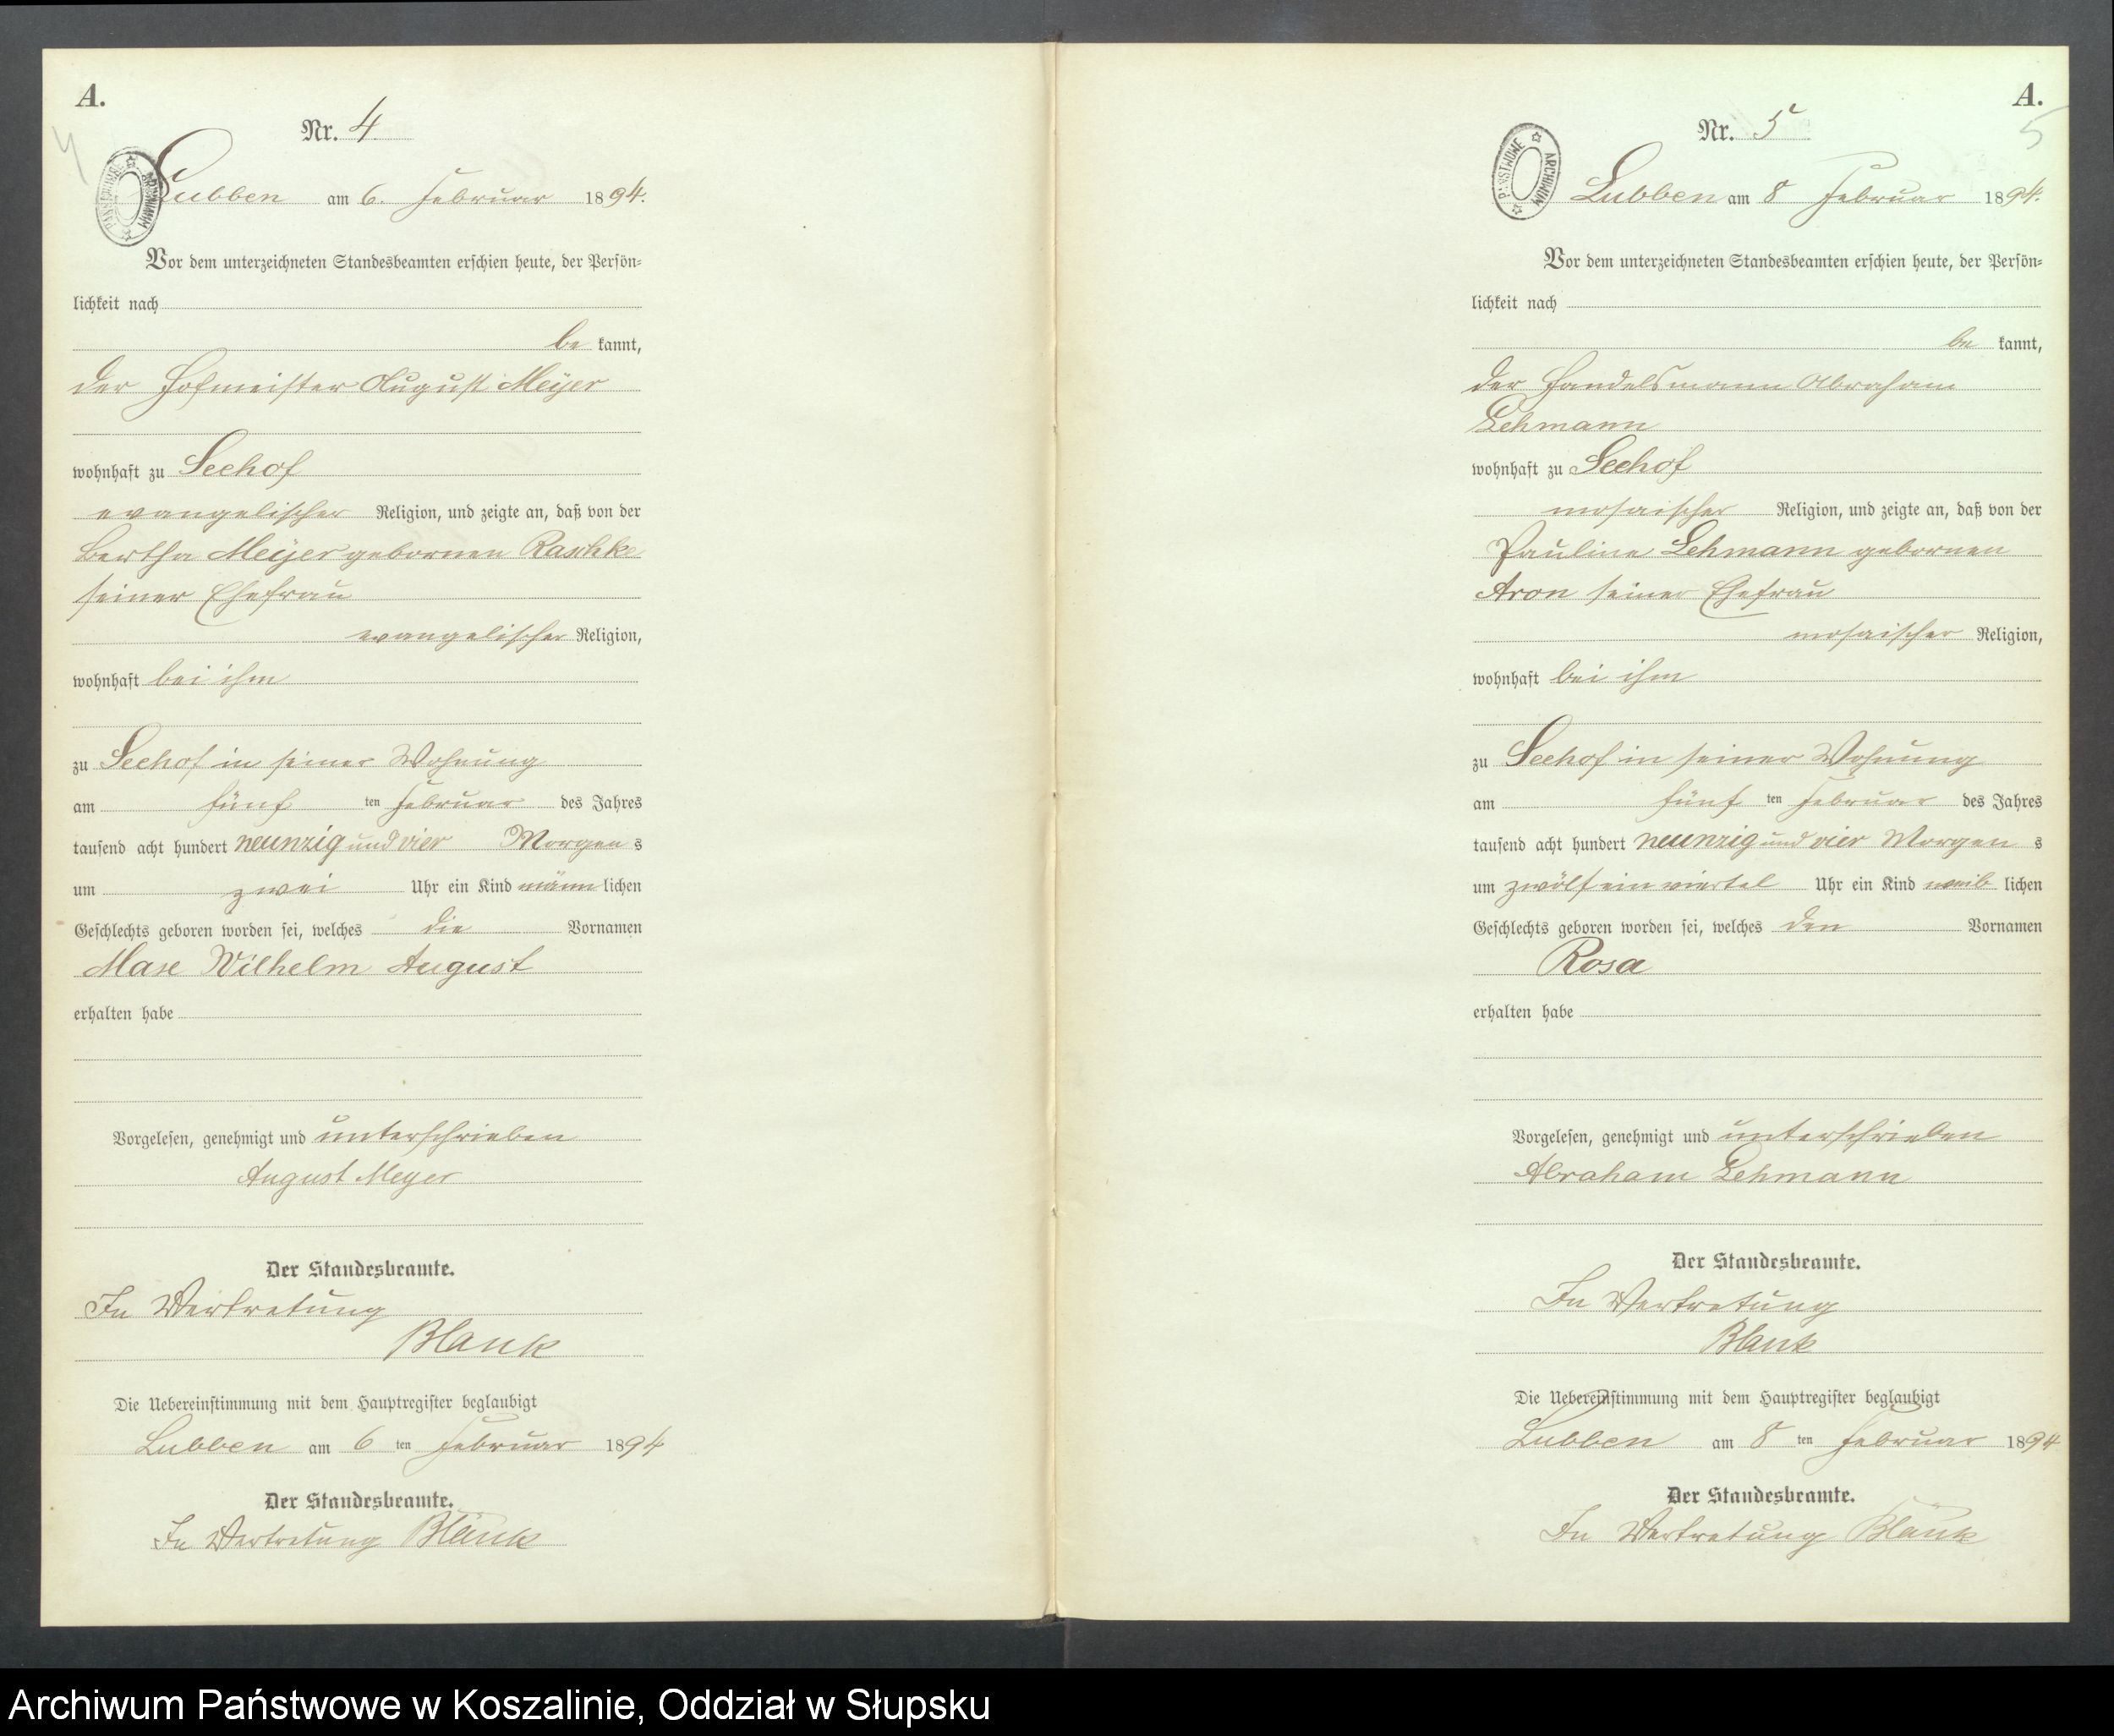 A.
4
Nr. 4
Lubben am 6. Februar 1894.
Vor dem unterzeichneten Standesbeamten erschien heute, der Persön-
lichkeit nach
be kannt,
der Hofmeister August Meyer
wohnhaft zu Seehof
evangelischer Religion, und zeigte an, daß von der
Bertha Meyer gebornen Raschke
seiner Ehefrau
evangelischer Religion,
wohnhaft bei ihm
zu Seehof in seiner Wohnung
am fünf ten Februar des Jahres
tausend acht hundert neunzig und vier Morgen s
um zwei Uhr ein Kind männ lichen
Geschlechts geboren worden sei, welches die Vornamen
Max Wilhelm August
erhalten habe
Vorgelesen, genehmigt und unterschrieben
August Meyer
Der Standesbeamte.
In Vertretung
Blank
Die Uebereinstimmung mit dem Hauptregister beglaubigt
Lubben am 6 ten Februar 1894
Der Standesbeamte.
In Vertretung Blank
A.
5
Nr. 5
PAŃSTWOWE ARCHIWUM
Lubben am 8 Februar 1894.
Vor dem unterzeichneten Standesbeamten erschien heute, der Persön-
lichkeit nach
be kannt,
der Handelsmann Abraham
Lehmann
wohnhaft zu Seehof
mosaischer Religion, und zeigte an, daß von der
Pauline Lehmann gebornen
Aron seiner Ehefrau
mosaischer Religion,
wohnhaft bei ihm
zu Seehof in seiner Wohnung
am fünf ten Februar des Jahres
tausend acht hundert neunzig und vier Morgen s
um zwölf ein viertel Uhr ein Kind weib lichen
Geschlechts geboren worden sei, welches den Vornamen
Rosa
erhalten habe
Vorgelesen, genehmigt und unterschrieben
Abraham Lehmann
Der Standesbeamte.
In Vertretung
Blank
Die Uebereinstimmung mit dem Hauptregister beglaubigt
Lubben am 8 ten Februar 1894
Der Standesbeamte.
In Vertretung Blank
Archiwum Państwowe w Koszalinie, Oddział w Słupsku